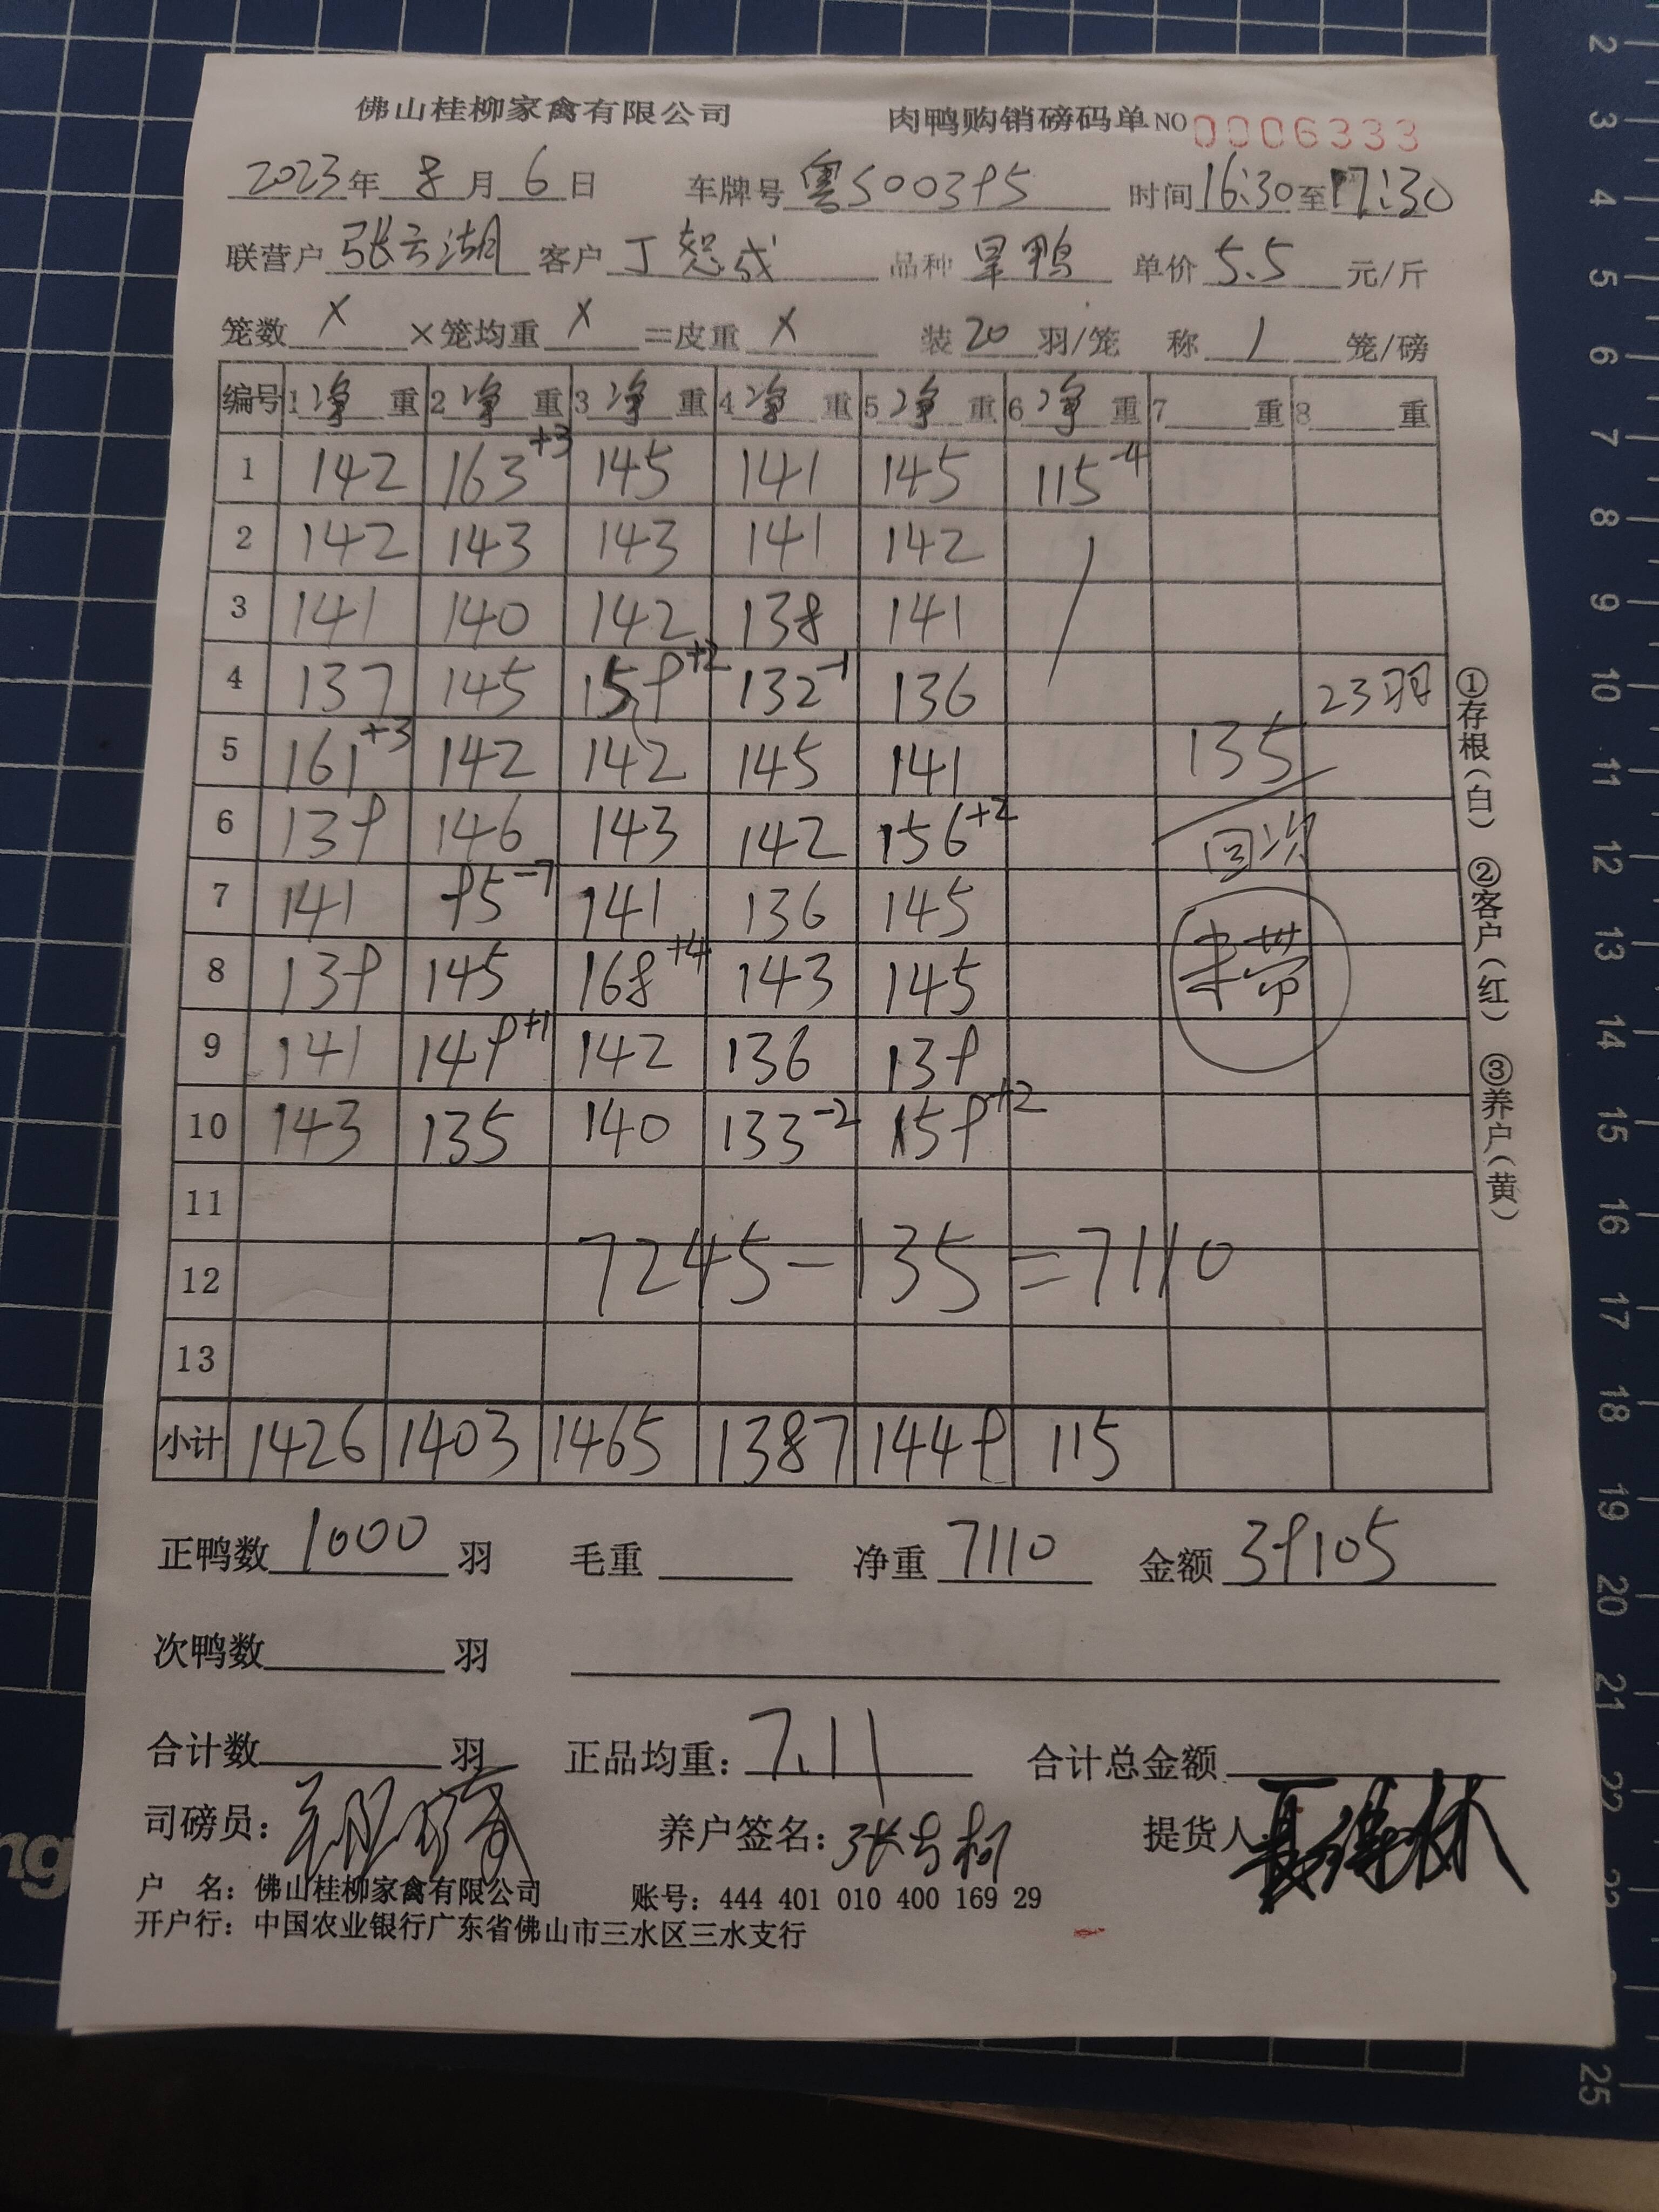 佛山桂柳家禽有限公司 肉鸭购销磅码单 NO 0006333
2023年 8月 6日 车牌号 粤S00395 时间 16:30至17:30
联营户 张云湖 客户 丁恕成 品种 旱鸭 单价 5.5 元/斤
笼数 X ×笼均重 X =皮重 X 装 20 羽/笼 称 1 笼/磅
编号 1净重 2净重 3净重 4净重 5净重 6净重 7 重 8 重
1 142 163+3 145 141 145 115-4
2 142 143 143 141 142 /
3 141 140 142 138 141
4 137 145 159+2 132-1 136 23羽
5 161+3 142 142 145 141 135
6 139 146 143 142 156+2 回次
7 141 95-7 141 136 145
8 139 145 168+4 143 145 未带
9 141 149+1 142 136 139
10 143 135 140 133-2 159+2
11
12 7245-135=7110
13
小计 1426 1403 1465 1387 1449 115
①存根(白) ②客户(红) ③养户(黄)
正鸭数 1000 羽 毛重 净重 7110 金额 39105
次鸭数 羽
合计数 羽 正品均重: 7.11 合计总金额
司磅员: 养户签名: 提货人
户 名: 佛山桂柳家禽有限公司 账号: 444 401 010 400 169 29
开户行: 中国农业银行广东省佛山市三水区三水支行
2
3
4
5
6
7
8
9
10
11
12
13
14
15
16
17
18
19
20
21
22
25
ng